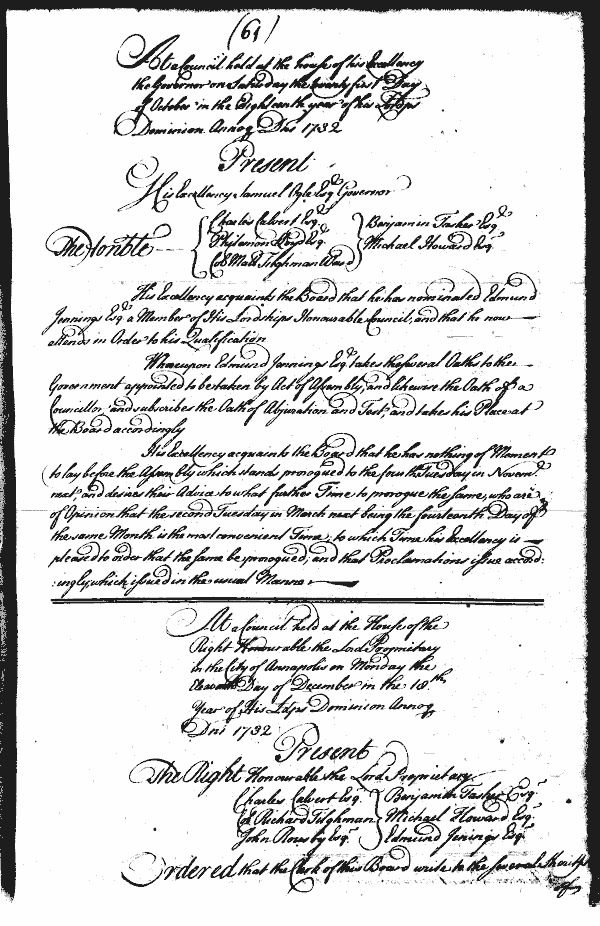 (61)
At a Council held at the house of his Excellency
the Governor on Saturday the twenty first Day
of October in the Eighteenth year of his Ldsps
Dominion Annoq Dni 1732
Present
His Excellency Samuel Ogle Esqr. Governor
Charles Calvert Esqr. Benjamin Tasker Esqr.
The Honble Philemon Lloyd Esqr. Michael Howard Esqr.
Col Matt Tilghman Ward
His Excellency acquaints the Board that he has nominated Edmund
Jennings Esqr. a Member of His Lordships Honourable Council, and that he now
attends in Order to his Qualification
Whereupon Edmund Jennings Esqr. takes the several Oaths to the
Government appointed to be taken by Act of Assembly, and likewise the Oath of a
Councillor, and subscribes the Oath of Abjuration and Test, and takes his Place at
the Board accordingly
His Excellency acquaints the Board that he has nothing of Moment
to lay before the Assembly which stands prorogued to the fourth Tuesday in Novemr.
next, and desires their Advice to what further Time to prorogue the same, who are
of Opinion that the second Tuesday in March next being the fourteenth Day of
the same Month is the most convenient Time; to which Time his Excellency is
pleased to order that the same be prorogued, and that Proclamations issue accord:
:ingly, which issued in the usual Manner
At a Council held at the House of the
Right Honourable the Lord Proprietary
in the City of Annapolis on Monday the
Eleventh Day of December in the 18th
Year of His Ldsps Dominion Annoq
Dni 1732
Present
The Right Honourable the Lord Proprietary
Charles Calvert Esqr. Benjamin Tasker Esqr.
Col Richard Tilghman Michael Howard Esqr.
John Rousby Esqr. Edmund Jenings Esqr.
Ordered that the Clerk of this Board write to the several Sheriffs
of